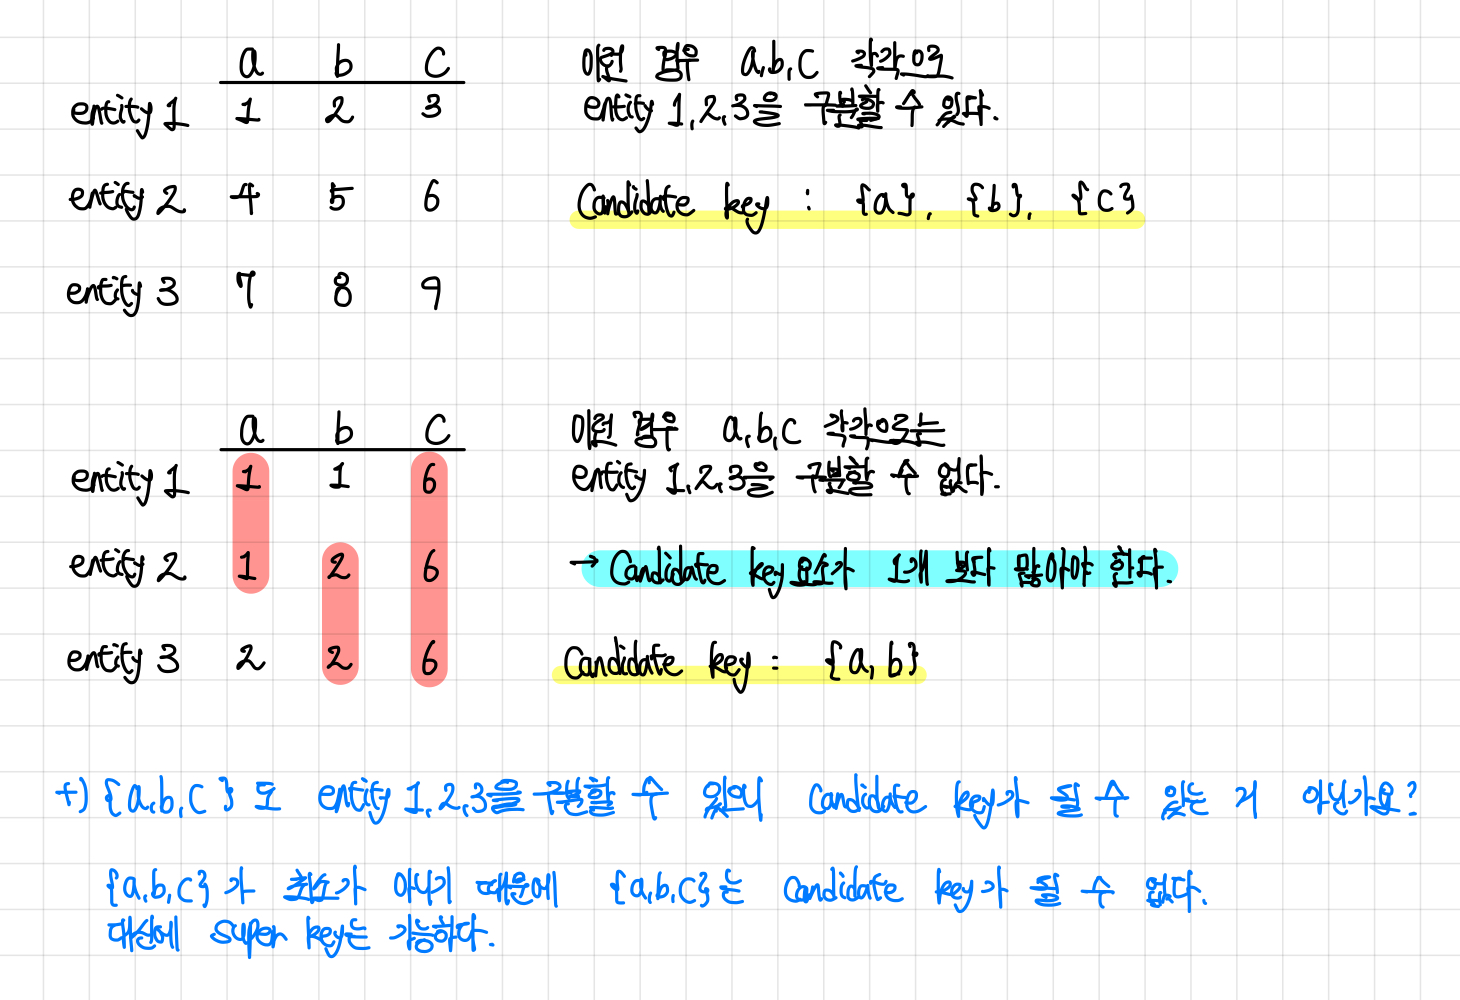 a b c
entity 1 1 2 3
entity 2 4 5 6
entity 3 7 8 9
이런 경우 a,b,c 각각으로
entity 1,2,3을 구분할 수 있다.
Candidate key : {a}, {b}, {c}
a b c
entity 1 1 1 6
entity 2 1 2 6
entity 3 2 2 6
이런 경우 a,b,c 각각으로는
entity 1,2,3을 구분할 수 없다.
→ Candidate key 요소가 1개 보다 많아야 한다.
Candidate key : {a, b}
+) {a,b,c} 도 entity 1,2,3을 구분할 수 있으니 Candidate key가 될 수 있는 거 아닌가요?
{a,b,c}가 최소가 아니기 때문에 {a,b,c}는 Candidate key가 될 수 없다.
대신에 super key는 가능하다.